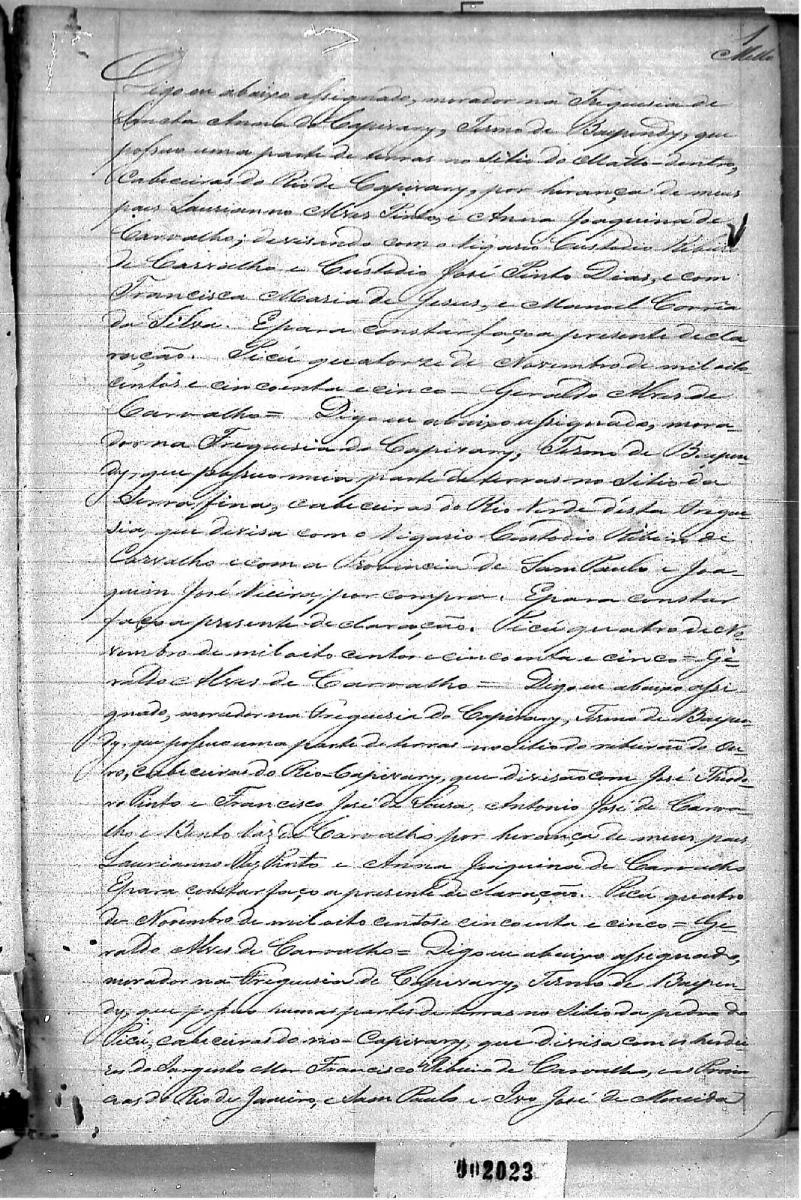 1
Mello
Digo eu abaixo assignado, morador na Freguesia de
Sancta Anna do Capivary, Termo de Baependy, que
possuo uma parte de terras no Sitio do Matto-dentro,
Cabeceiras do Rio de Capivary, por herança de meus
pais Laurianno Alves Pinto, e Anna Joaquina de
Carvalho; devisando com o Vigario Custodio Ribeiro
de Carvalho e Custodio José Pinto Dias, e com
Francisca Maria de Jesus, e Manoel Corrêa
da Silva. E para constar faço a presente decla
ração. Picú quatorze de Novembro de mil oito
centos e cincoenta e cinco = Geraldo Alves de
Carvalho = Digo eu abaixo assignado, mora-
dor na Freguesia do Capivary, Termo de Baepen-
dy, que possuo uma parte de terras no Sitio da
Serra fina, cabeceiras do Rio Verde desta Fregue-
sia, que devisa com o Vigario Custodio Ribeiro de
Carvalho e com a Provincia de Sam Paulo e Joa-
quim José Vieira, por compra. E para constar
faço a presente declaração. Picú quatro de No
vembro de mil oito centos e cincoenta e cinco = Ge
raldo Alves de Carvalho = Digo eu abaixo assi-
gnado, morador na Freguesia do Capivary, Termo de Baepen-
dy, que possuo uma parte de terras no Sitio do ribeirão do Ou-
ro, cabeceiras do Rio Capivary, que divisão com José Theodo-
ro Pinto e Francisco José de Sousa, Antonio José de Carva-
lho e Bento de Carvalho por herança de meus pais
Laurianno Alz Pinto e Anna Joaquina de Carvalho
E para constar faço a presente declaração. Picú quatro
de Novembro de mil oito centos e cincoenta e cinco = Ge-
raldo Alves de Carvalho = Digo eu abaixo assignado,
morador na Freguesia de Capivary, Termo de Baepen-
dy, que possuo humas partes de terras no Sitio da pedra do
Picú, cabeceiras do rio Capivary, que divisa com os herdei-
ros do Sargento Mor Francisco Ribeiro de Carvalho, e as Provin
cias do Rio de Janeiro, e Sam Paulo e Ivo José de Almeida
002023